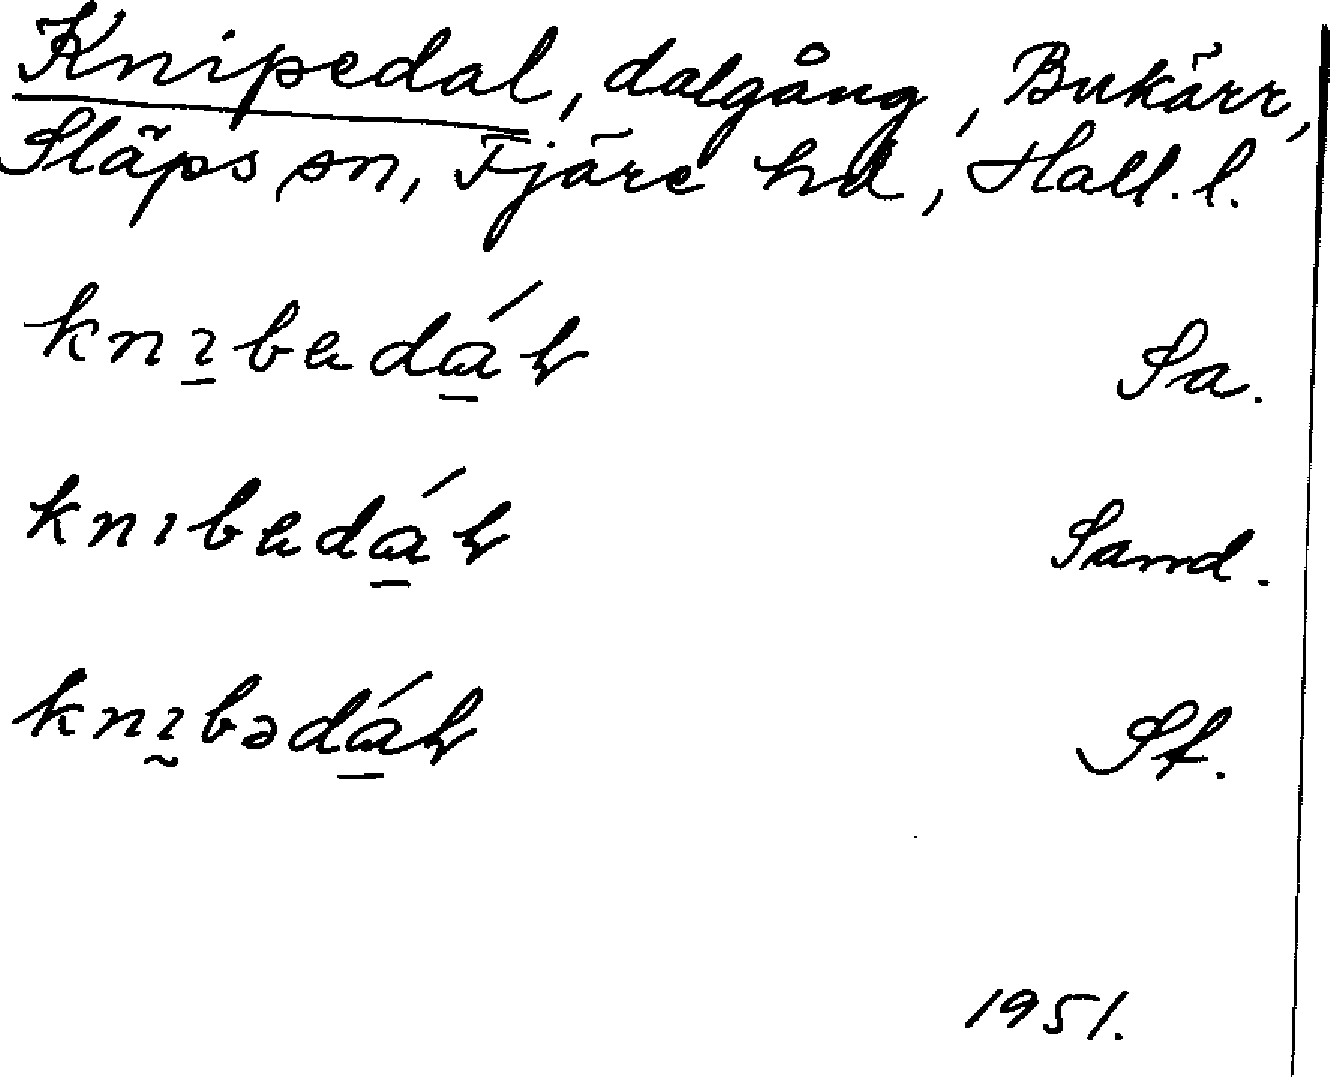 Knipedal, dalgång, Bukärr,
Släps sn, Fjäre hd, Hall. l.
Sa.
Sand.
St.
1951.